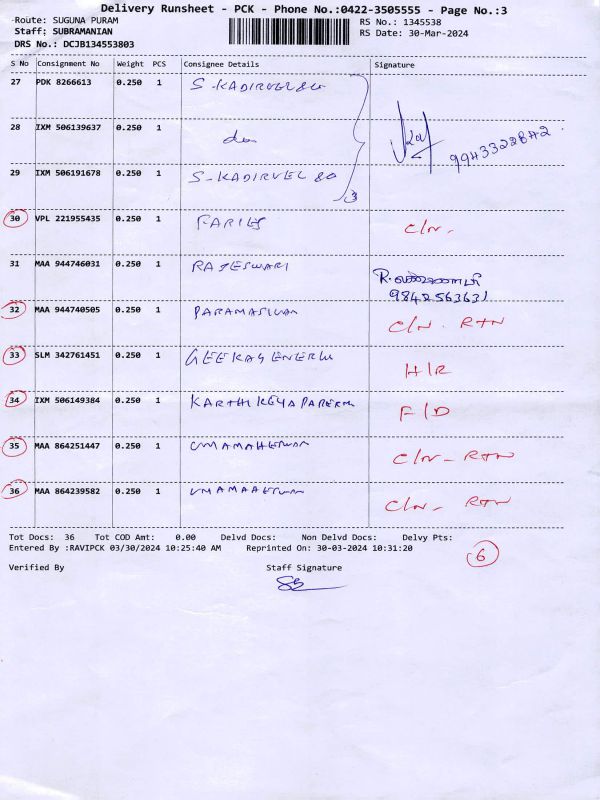 Delivery Runsheet - PCK - Phone No.:0422-3505555 - Page No.:3
Route: SUGUNA PURAM RS No.: 1345538
Staff: SUBRAMANIAN RS Date: 30-Mar-2024
DRS No.: DCJB134553803
S No Consignment No Weight PCS Consignee Details Signature
27 PDK 8266613 0.250 1 S-KADIRVEL & Co
28 IXM 506139637 0.250 1 do
29 IXM 506191678 0.250 1 S-KADIRVEL & Co
3
30 VPL 221955435 0.250 1 C/N.
31 MAA 944746031 0.250 1 RAJESWARI R.
9842563631
32 MAA 944740505 0.250 1 PARAMASIVAN C/N. RTN
33 SLM 342761451 0.250 1 GEEKAY ENERGY H/R
34 IXM 506149384 0.250 1 KARTHIKEYA F/D
35 MAA 864251447 0.250 1 C/N - RTN
36 MAA 864239582 0.250 1 C/N - RTN
Tot Docs: 36 Tot COD Amt: 0.00 Delvd Docs: Non Delvd Docs: Delvy Pts:
Entered By :RAVIPCK 03/30/2024 10:25:40 AM Reprinted On: 30-03-2024 10:31:20
6
Verified By Staff Signature